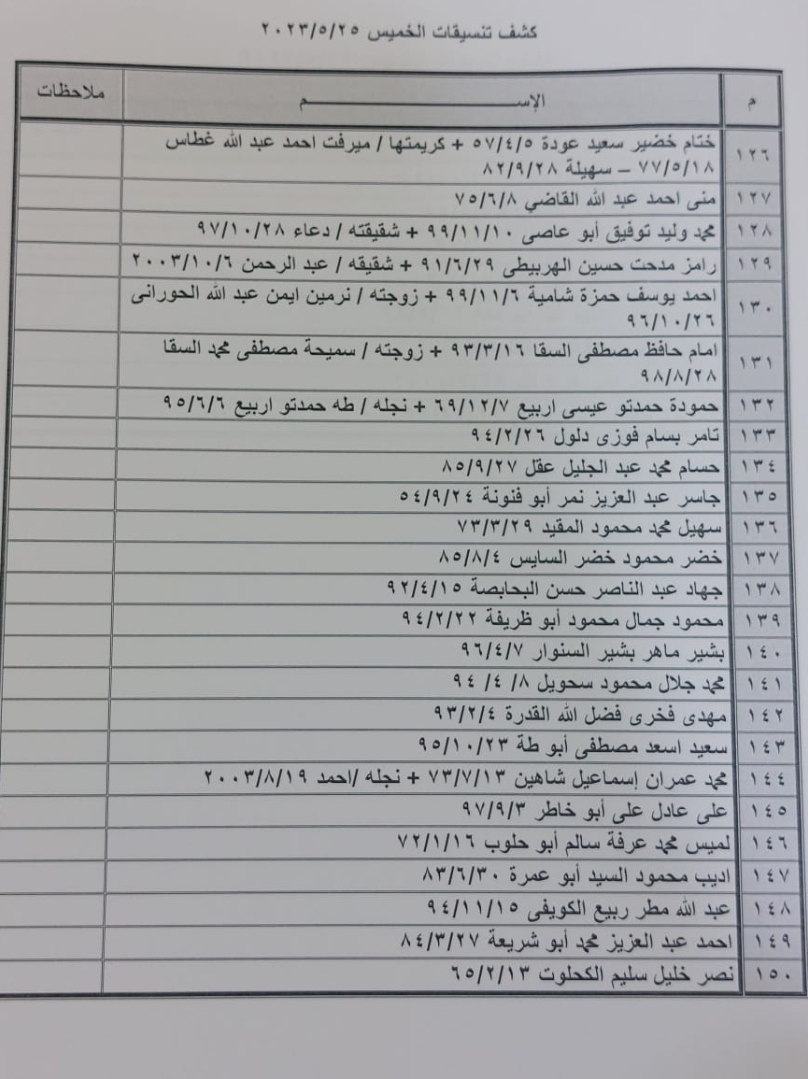 كشف تنسيقات الخميس ٢٠٢٣/٥/٢٥
م الإســـــــم ملاحظات
١٢٦ ختام خضير سعيد عودة ٥٧/٤/٥ + كريمتها / ميرفت احمد عبد الله غطاس
٧٧/٥/١٨ – سهيلة ٨٢/٩/٢٨
١٢٧ منى احمد عبد الله القاضي ٧٥/٦/٨
١٢٨ محمد وليد توفيق أبو عاصى ٩٩/١١/١٠ + شقيقته / دعاء ٩٧/١٠/٢٨
١٢٩ رامز مدحت حسين الهربيطى ٩١/٦/٢٩ + شقيقه / عبد الرحمن ٢٠٠٣/١٠/٦
١٣٠ احمد يوسف حمزة شامية ٩٩/١١/٦ + زوجته / نرمين ايمن عبد الله الحورانى
٩٦/١٠/٢٦
١٣١ امام حافظ مصطفى السقا ٩٣/٣/١٦ + زوجته / سميحة مصطفى محمد السقا
٩٨/٨/٢٨
١٣٢ حمودة حمدتو عيسى اربيع ٦٩/١٢/٧ + نجله / طه حمدتو اربيع ٩٥/٦/٦
١٣٣ تامر بسام فوزى دلول ٩٤/٢/٢٦
١٣٤ حسام محمد عبد الجليل عقل ٨٥/٩/٢٧
١٣٥ جاسر عبد العزيز نمر أبو فنونة ٥٤/٩/٢٤
١٣٦ سهيل محمد محمود المقيد ٧٣/٣/٢٩
١٣٧ خضر محمود خضر السايس ٨٥/٨/٤
١٣٨ جهاد عبد الناصر حسن البحابصة ٩٢/٤/١٥
١٣٩ محمود جمال محمود أبو ظريفة ٩٤/٢/٢٢
١٤٠ بشير ماهر بشير السنوار ٩٦/٤/٧
١٤١ محمد جلال محمود سحويل ٨/ ٤/ ٩٤
١٤٢ مهدى فخرى فضل الله القدرة ٩٣/٢/٤
١٤٣ سعيد اسعد مصطفى أبو طة ٩٥/١٠/٢٣
١٤٤ محمد عمران إسماعيل شاهين ٧٣/٧/١٣ + نجله /احمد ٢٠٠٣/٨/١٩
١٤٥ على عادل على أبو خاطر ٩٧/٩/٣
١٤٦ لميس محمد عرفة سالم أبو حلوب ٧٢/١/١٦
١٤٧ اديب محمود السيد أبو عمرة ٨٣/٦/٣٠
١٤٨ عبد الله مطر ربيع الكويفى ٩٤/١١/١٥
١٤٩ احمد عبد العزيز محمد أبو شريعة ٨٤/٣/٢٧
١٥٠ نصر خليل سليم الكحلوت ٦٥/٢/١٣